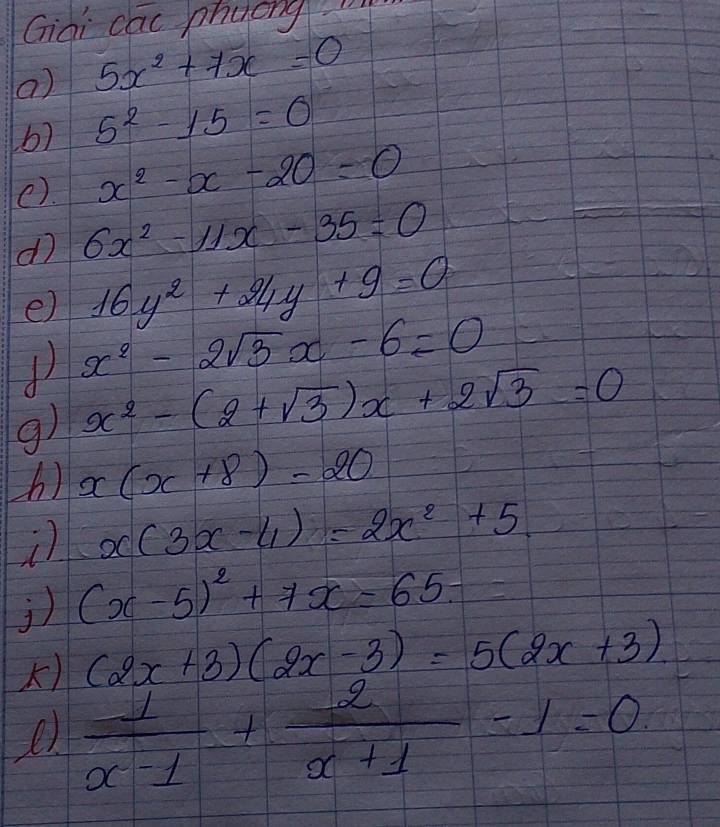 Giải các phương
a) 5x² + 7x = 0
b) 5² - 15 = 0
c). x² - x - 20 = 0
d) 6x² - 11x - 35 = 0
e) 16y² + 24y + 9 = 0
f) x² - 2√3 x - 6 = 0
g) x² - (2 + √3)x + 2√3 = 0
h) x(x + 8) = 20
i) x(3x - 4) = 2x² + 5.
j) (x - 5)² + 7x = 65.
k) (2x + 3)(2x - 3) = 5(2x + 3).
l). 1/(x - 1) + 2/(x + 1) - 1 = 0.